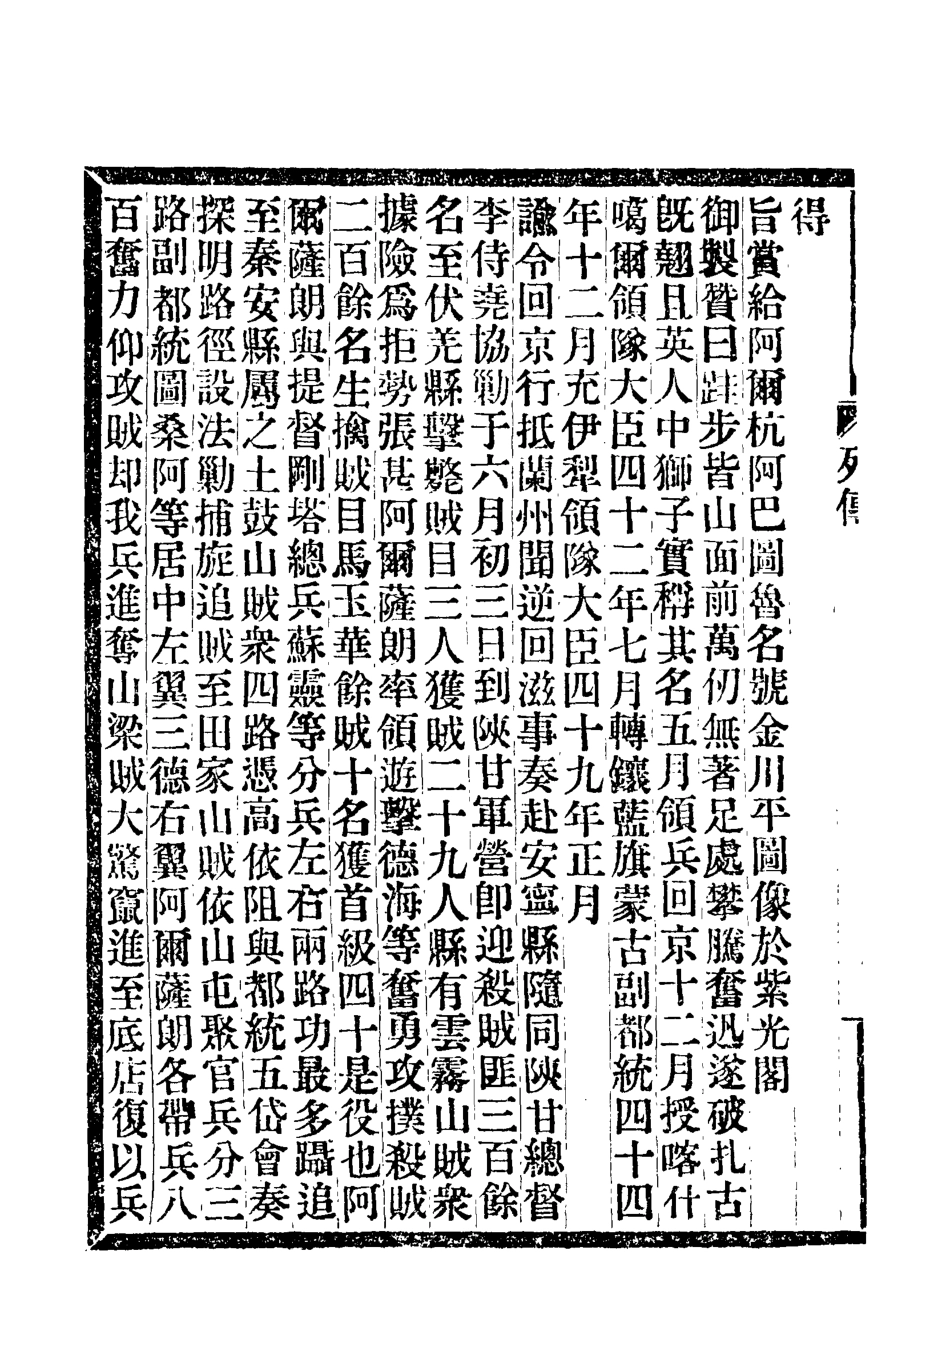 列傳
得
旨賞給阿爾杭阿巴圖魯名號金川平圖像於紫光閣
御製贊曰跬步皆山面前萬仞無著足處攀騰奮迅遂破扎古
旣翹且英人中獅子實稱其名五月領兵回京十二月授喀什
噶爾領隊大臣四十二年七月轉鑲藍旗蒙古副都統四十四
年十二月充伊犁領隊大臣四十九年正月
諭令回京行抵蘭州聞逆回滋事奏赴安寧縣隨同陝甘總督
李侍堯協勦于六月初三日到陝甘軍營卽迎殺賊匪三百餘
名至伏羌縣擊斃賊目三人獲賊二十九人縣有雲霧山賊衆
據險爲拒勢張甚阿爾薩朗率領遊擊德海等奮勇攻撲殺賊
二百餘名生擒賊目馬玉華餘賊十名獲首級四十是役也阿
爾薩朗與提督剛塔總兵蘇靈等分兵左右兩路功最多躡追
至秦安縣屬之土鼓山賊衆四路憑高依阻與都統五岱會奏
探明路徑設法勦捕旋追賊至田家山賊依山屯聚官兵分三
路副都統圖桑阿等居中左翼三德右翼阿爾薩朗各帶兵八
百奮力仰攻賊却我兵進奪山梁賊大驚竄進至底店復以兵